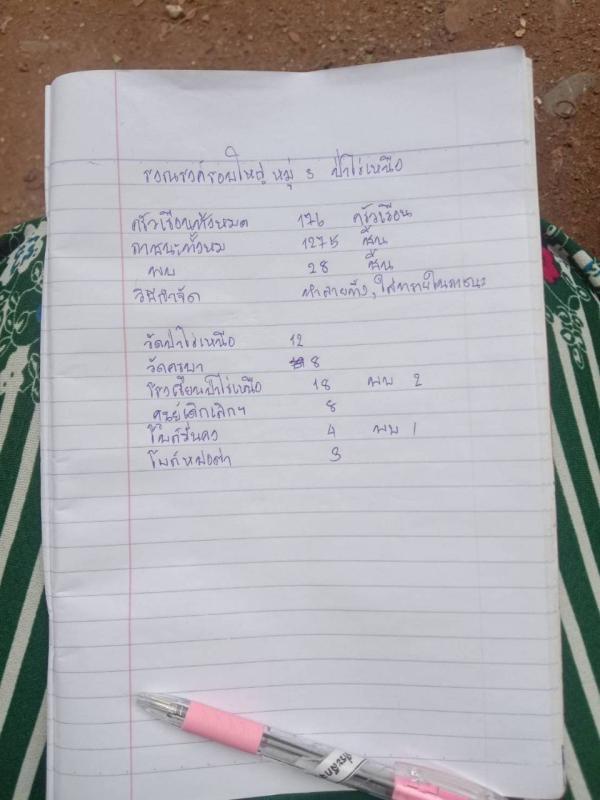 รณรงค์รอบใหญ่ หมู่ 3 ป่าไร่เหนือ
ครัวเรือนทั้งหมด 176 ครัวเรือน
ภาชนะทั้งหม 1275 ชิ้น
พบ 28 ชิ้น
วิธีกำจัด ทำลายทิ้ง, ใส่ทรายในภาชนะ
วัดป่าไร่เหนือ 12
วัดครูบา 8
โรงเรียนป่าไร่เหนือ 18 พบ 2
ศูนย์เด็กเล็กฯ 8
โบสถ์ 4 พบ 1
โบสถ์ 3